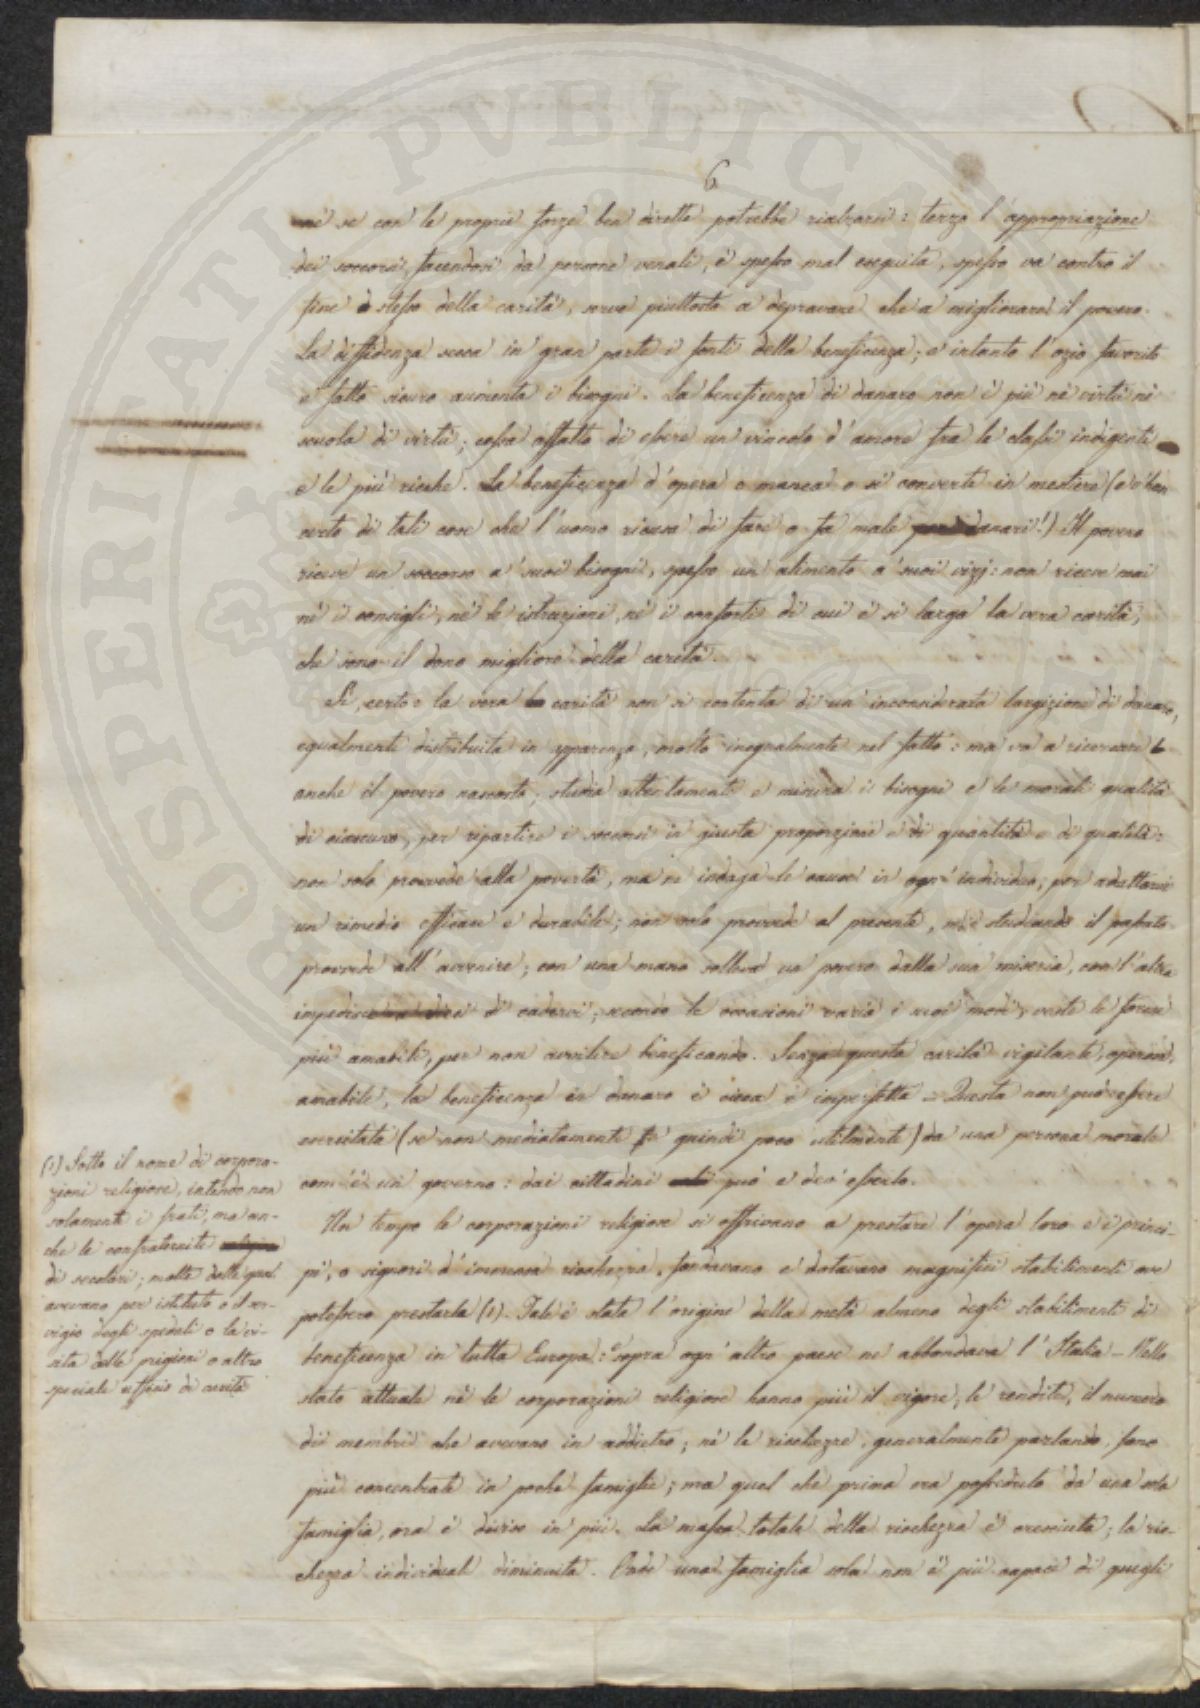 6
nè se con le proprie forze ben dirette potrebbe rialzarsi: terzo l'appropriazione
dei soccorsi, facendosi da persone venali, è spesso mal eseguita, spesso va contro il
fine stesso della carità, serve piuttosto a depravare che a migliorare il povero.
La diffidenza secca in gran parte i fonti della beneficenza; e intanto l'ozio favorito
e fatto sicuro aumenta i bisogni. La beneficenza di danaro non è più nè virtù nè
scuola di virtù; cessa affatto di essere un vincolo d'amore fra le classi indigenti
e le più ricche. La beneficenza d'opera o manca o si converte in mestiere (e v'ha
certo di tali cose che l'uomo ricusa di fare o fa male danari!) Il povero
riceve un soccorso a' suoi bisogni, spesso un alimento a' suoi vizj: non riceve mai
nè i consigli, nè le istruzioni, nè i conforti di cui è sì larga la vera carità,
che sono il dono migliore della carità.
Sì, certo: la vera carità non si contenta di un'inconsiderata largizione di danaro,
egualmente distribuita in apparenza, molto inegualmente nel fatto: ma va a ricercare
anche il povero nascosto; studia attentamente e misura i bisogni e le morali qualità
di ciascuno, per ripartire i soccorsi in giusta proporzione e di quantità e di qualità:
non solo provvede alla povertà, ma ne indaga le cause in ogni individuo, per adattarvi
un rimedio efficace e durabile; non solo provvede al presente, ma studiando il passato
provvede all'avvenire; con una mano solleva un povero dalla sua miseria, con l'altra
impedisce di cadervi; secondo le occasioni varia i suoi modi, veste le forme
più amabili, per non avvilire beneficando. Senza questa carità vigilante, operosa,
amabile, la beneficenza in danaro è cieca è imperfetta – Questa non può essere
esercitata (se non mediatamente e quindi poco utilmente) da una persona morale
com'è un governo: dai cittadini può e dee esserlo.
Un tempo le corporazioni religiose si offrivano a prestare l'opera loro e i princi-
pi, o signori d'immensa ricchezza, fondavano e dotavano magnifici stabilimenti ove
potessero prestarla (1). Tale è stata l'origine della metà almeno degli stabilimenti di
beneficenza in tutta Europa: sopra ogn'altro paese ne abbondava l'Italia – Nello
stato attuale nè le corporazioni religiose hanno più il vigore, le rendite, il numero
dei membri che avevano in addietro; nè le ricchezze, generalmente parlando, sono
più concentrate in poche famiglie; ma quel che prima era posseduto da una sola
famiglia, ora è diviso in più. La massa totale della ricchezza è cresciuta; la ric-
chezza individuale diminuita. Onde una famiglia sola non è più capace di quegli
(1) Sotto il nome di corpora-
zioni religiose, intendo non
solamente i frati, ma an-
che le confraternite
di secolari; molte delle quali
avevano per istituto o il ser-
vigio degli spedali o la vi-
sita delle prigioni o altro
speciale uffizio di carità
PROSPERITATI PVBLICAE